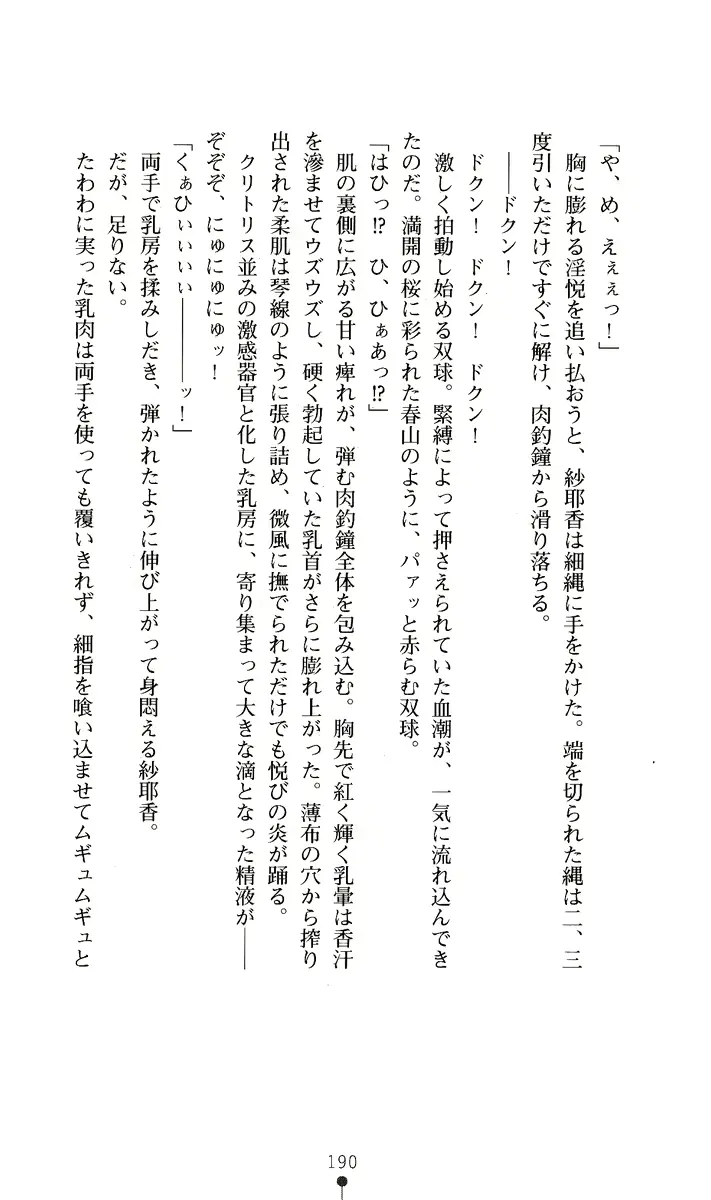 「や、め、えぇぇっ！」
　胸に膨れる淫悦を追い払おうと、紗耶香は細縄に手をかけた。端を切られた縄は二、三
度引いただけですぐに解け、肉釣鐘から滑り落ちる。
　――ドクン！
　ドクン！　ドクン！　ドクン！
　激しく拍動し始める双球。緊縛によって押さえられていた血潮が、一気に流れ込んでき
たのだ。満開の桜に彩られた春山のように、パァッと赤らむ双球。
「はひっ!?　ひ、ひぁあっ!?」
　肌の裏側に広がる甘い痺れが、弾む肉釣鐘全体を包み込む。胸先で紅く輝く乳暈は香汗
を滲ませてウズウズし、硬く勃起していた乳首がさらに膨れ上がった。薄布の穴から搾り
出された柔肌は琴線のように張り詰め、微風に撫でられただけでも悦びの炎が踊る。
　クリトリス並みの激感器官と化した乳房に、寄り集まって大きな滴となった精液が――
ぞぞぞ、にゅにゅにゅッ！
「くぁひぃぃぃぃ――――ッ！」
　両手で乳房を揉みしだき、弾かれたように伸び上がって身悶える紗耶香。
だが、足りない。
　たわわに実った乳肉は両手を使っても覆いきれず、細指を喰い込ませてムギュムギュと
190